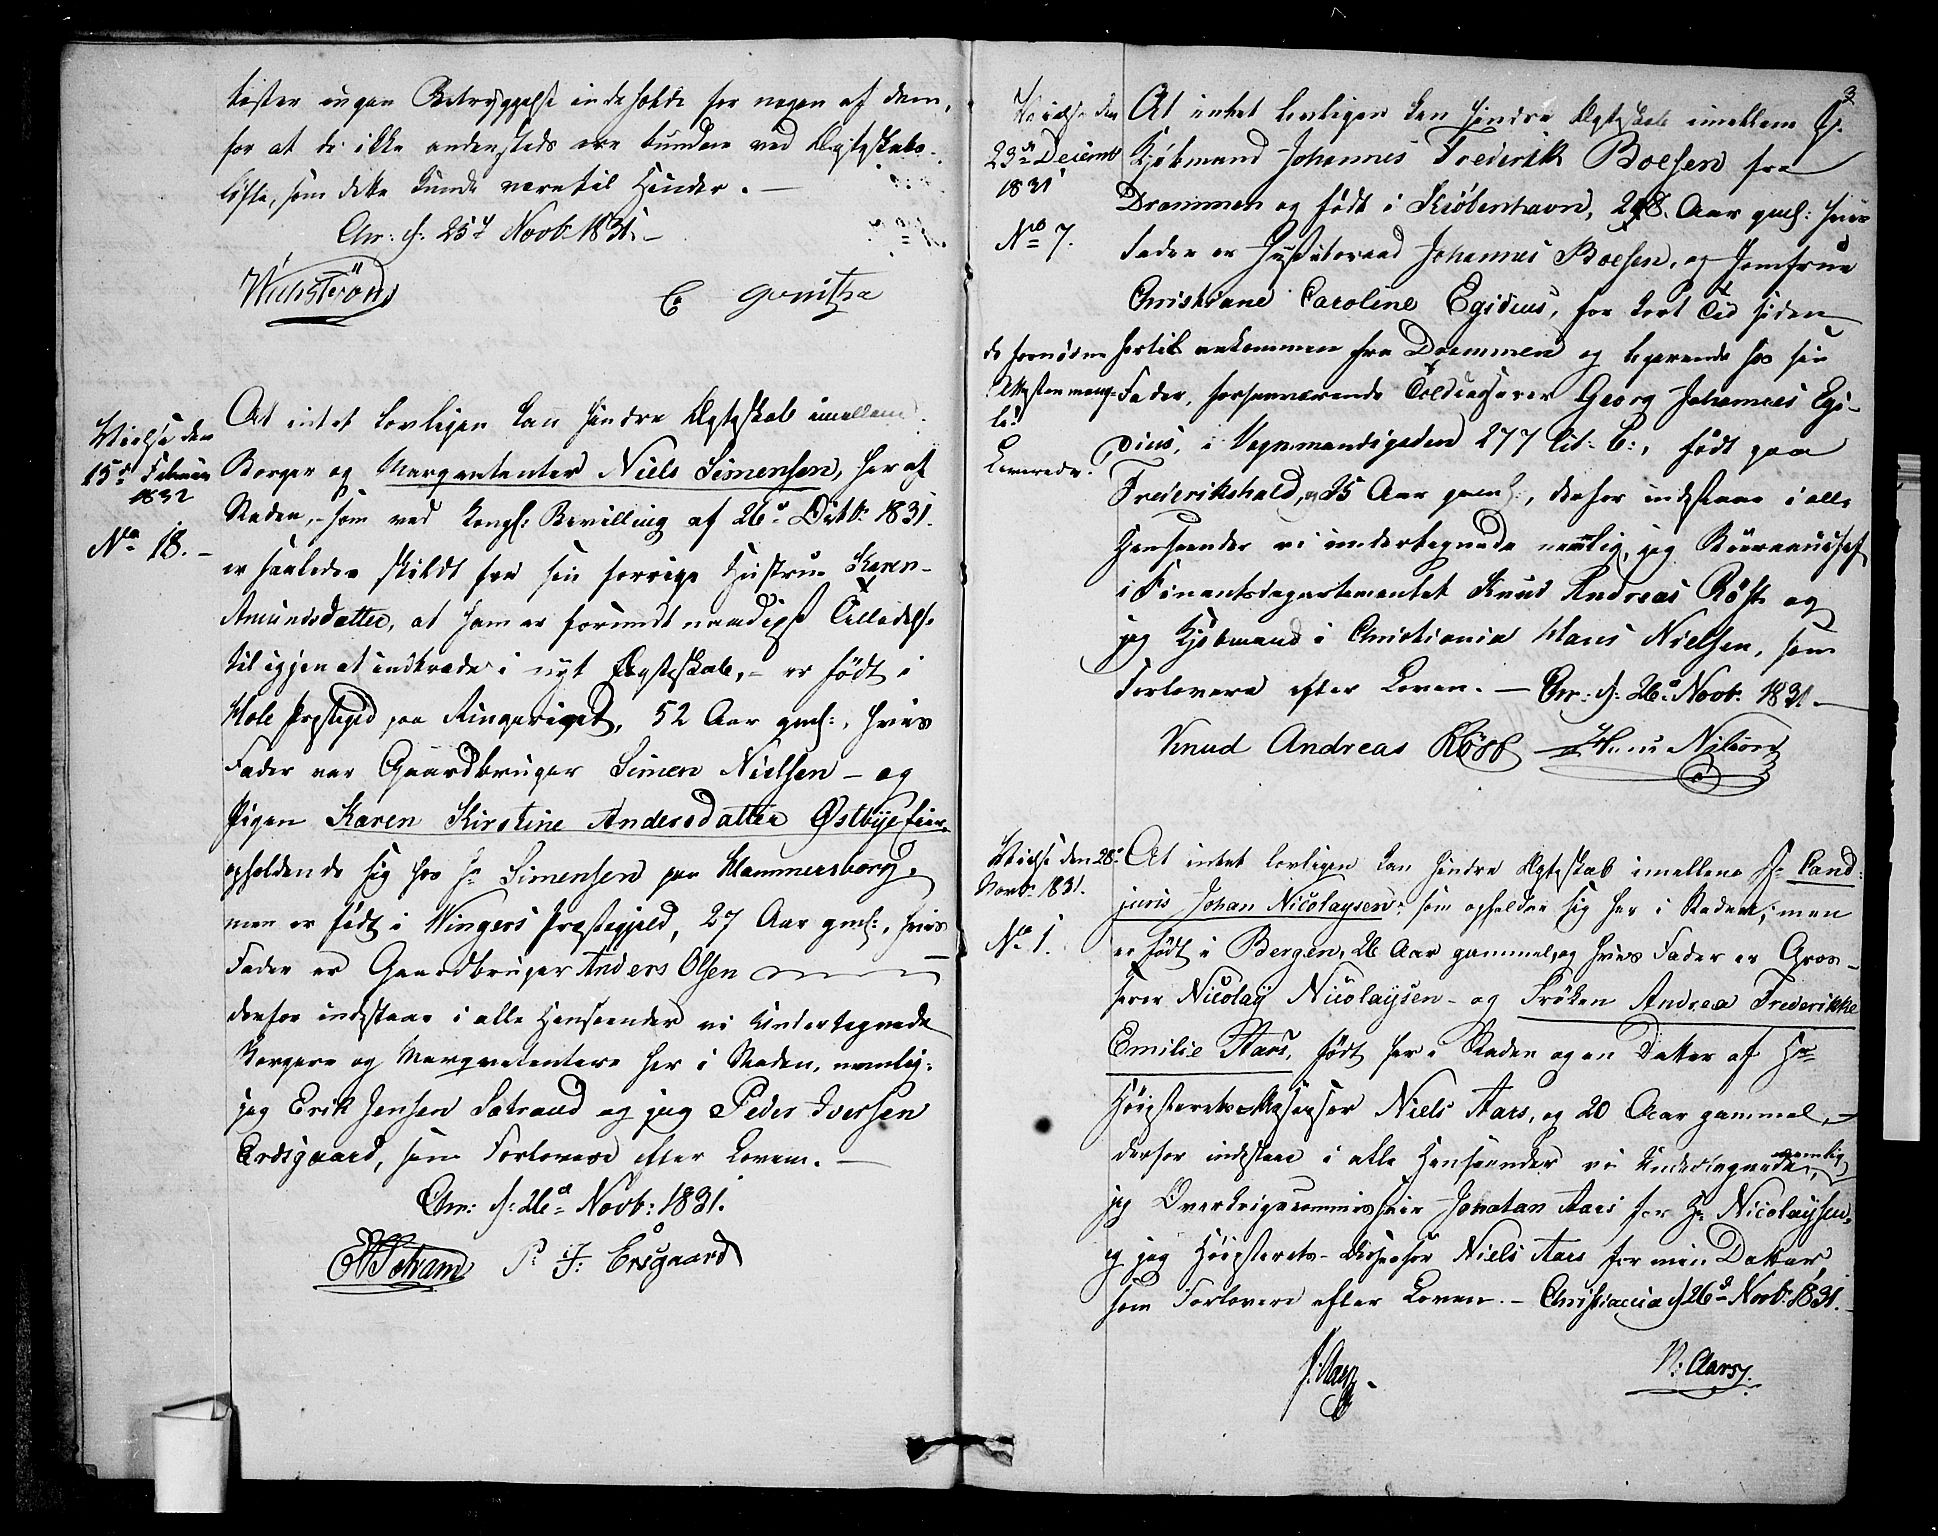 tister ingen Betryggelse indeholde for nogen af dem,
for at de ikke andensteds ere bundne ved Ægteskabs-
løfte, som dette kunde være til Hinder. —
Chr. d: 25d Novb 1831. —
Wickstrøm
C
At intet lovligen kan hindre Ægteskab imellem
Vielse den
15d Februar
1832
No 18. –
Borger og Marqvetenter Niels Simensen, her af
Staden, – som ved kongl: Bevilling af 26d Octbr 1831.
er saaledes skildt fra sin forrige Hustrue Karen
Amundsdatter, at ham er forundt naadigst Tilladelse
til igjen at indtræde i nyt Ægteskab, – er født i
Hole Præstegjd paa Ringeriget, 52 Aar gml:, hvis
Fader var Gaardbruger Simen Nielsen – og
Pigen Karen Kirstine Andersdatter Østbye
opholdende sig hos Hr Simensen paa Hammersborg,
men er født i Wingers Præstegjeld, 27 Aar gml:, hvis
Fader er Gaardbruger Anders Olsen
derfor indestaae i alle Henseender vi Undertegnede
Borgere og Marqvetentere her i Staden, nemlig:
jeg Erik Jensen Satrand og jeg Peder Iversen
Erdsgaard, som Forlovere efter Loven. —
Chr: d: 26d Novb: 1831.
P: I: Ersgaard
3
Vielse den
23d Decemb
1831
No 7.
de fornødne
Attester mang-
le.
Leverede.
At intet lovligen kan hindre Ægteskab imellem Hr.
Kjøbmand Johannes Frederik Boesen fra
Drammen og født i Kiøbenhavn, 28 Aar gml: hvis
Fader er Justitsraad Johannes Boesen, og Jomfrue
Christiane Caroline Egidius, for kort Tid siden
hertil ankommen fra Drammen og logerende hos sin
Fader, forhenværende Toldcasserer Georg Johannes Egi-
dius, i Vognmandsgaden 277 Lit. C:, født paa
Frederikshald, 25 Aar gml:, derfor indestaae i alle
Henseender vi undertegnede nemlig, jeg Bureauchef
i Finantsdepartementet Knud Andreas Röst og
jeg Kjøbmand i Christiania Hans Nielsen, som
Forlovere efter Loven. — Chr: d: 26d Novb: 1831. —
Knud Andreas Röst Hans Nilson
Vielse den 28d
Novb. 1831.
No 1.
At intet lovligen kan hindre Ægteskab imellem Hr Cand:
juris Johan Nicolaysen, som opholder sig her i Staden, men
er født i Bergen, 26 Aar gammel, og hvis Fader er Gros-
serer Nicolay Nicolaysen – og Frøken Andrea Frederikke
Emilie Aars, født her i Staden og en Datter af Hr
Höiesterets-Assessor Niels Aars, og 20 Aar gammel, –
derfor indestaae i alle Henseender vi Undertegnede, nemlig
jeg Overkrigscommissair Jonatan Aars for Hr Nicolaysen,
og jeg Höiesterets-Assessor Niels Aars for min Datter,
som Forlovere efter Loven. – Christiania d 26d Novb. 1831. –
J. Aars. N: Aars.